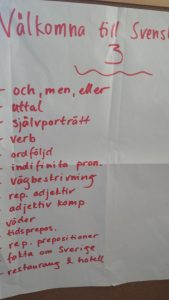 Välkomna till Svensk
3
- och, men, eller
- uttal
- självporträtt
- verb
- ordföljd
- indifinita pron.
- vägbeskrivning
- rep. adjektiv
- adjektiv komp
- väder
- tidsprepos.
- rep. prepositioner
- fakta om Sverige
- restaurang & hotell